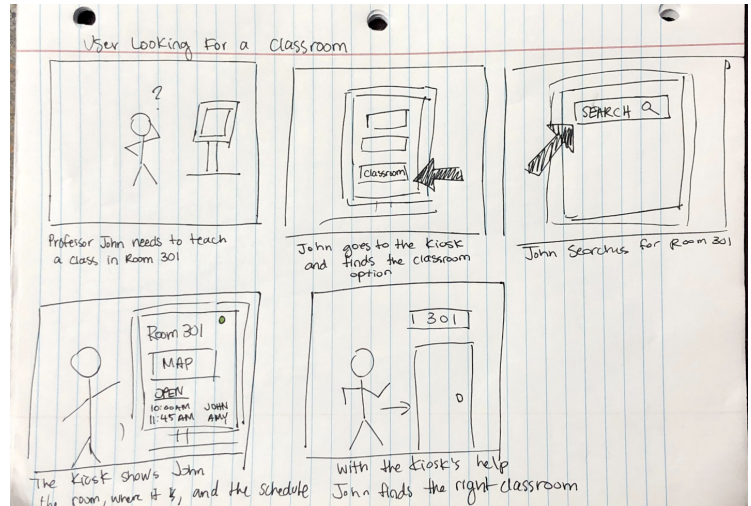 User Looking For a Classroom
?
Professor John needs to teach
a class in Room 301
Classroom
John goes to the Kiosk
and finds the classroom
option
SEARCH
John Searchus for Room 301
Room 301
MAP
OPEN
10:00AM JOHN
11:45 AM AMY
The Kiosk shows John
the room, where it is, and the schedule
301
With the Kiosk's help
John finds the right classroom